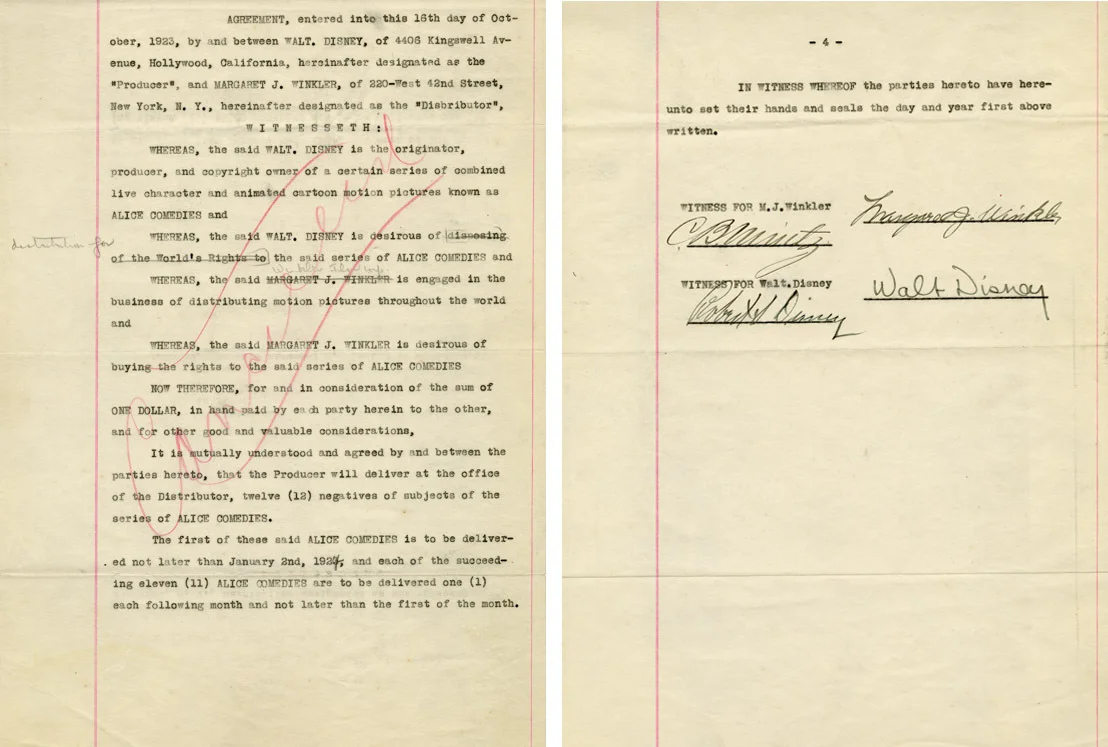 AGREEMENT, entered into this 16th day of Oct-
ober, 1923, by and between WALT. DISNEY, of 4406 Kingswell Av-
enue, Hollywood, California, hereinafter designated as the
"Producer", and MARGARET J. WINKLER, of 220-West 42nd Street,
New York, N. Y., hereinafter designated as the "Disbributor",
WITNESSETH:
WHEREAS, the said WALT. DISNEY is the originator,
producer, and copyright owner of a certain series of combined
live character and animated cartoon motion pictures known as
ALICE COMEDIES and
WHEREAS, the said WALT. DISNEY is desirous of disposing
of the World's Rights to the said series of ALICE COMEDIES and
WHEREAS, the said MARGARET J. WINKLER is engaged in the
business of distributing motion pictures throughout the world
and
WHEREAS, the said MARGARET J. WINKLER is desirous of
buying the rights to the said series of ALICE COMEDIES
NOW THEREFORE, for and in consideration of the sum of
ONE DOLLAR, in hand paid by each party herein to the other,
and for other good and valuable considerations,
It is mutually understood and agreed by and between the
parties hereto, that the Producer will deliver at the office
of the Distributor, twelve (12) negatives of subjects of the
series of ALICE COMEDIES.
The first of these said ALICE COMEDIES is to be deliver-
ed not later than January 2nd, 1924, and each of the succeed-
ing eleven (11) ALICE COMEDIES are to be delivered one (1)
each following month and not later than the first of the month.
Cancelled
- 4 -
IN WITNESS WHEREOF the parties hereto have here-
unto set their hands and seals the day and year first above
written.
WITNESS FOR M.J.Winkler
Margaret J. Winkler
C.B. Mintz
WITNESS FOR Walt.Disney
Walt Disney
Robert S Disney